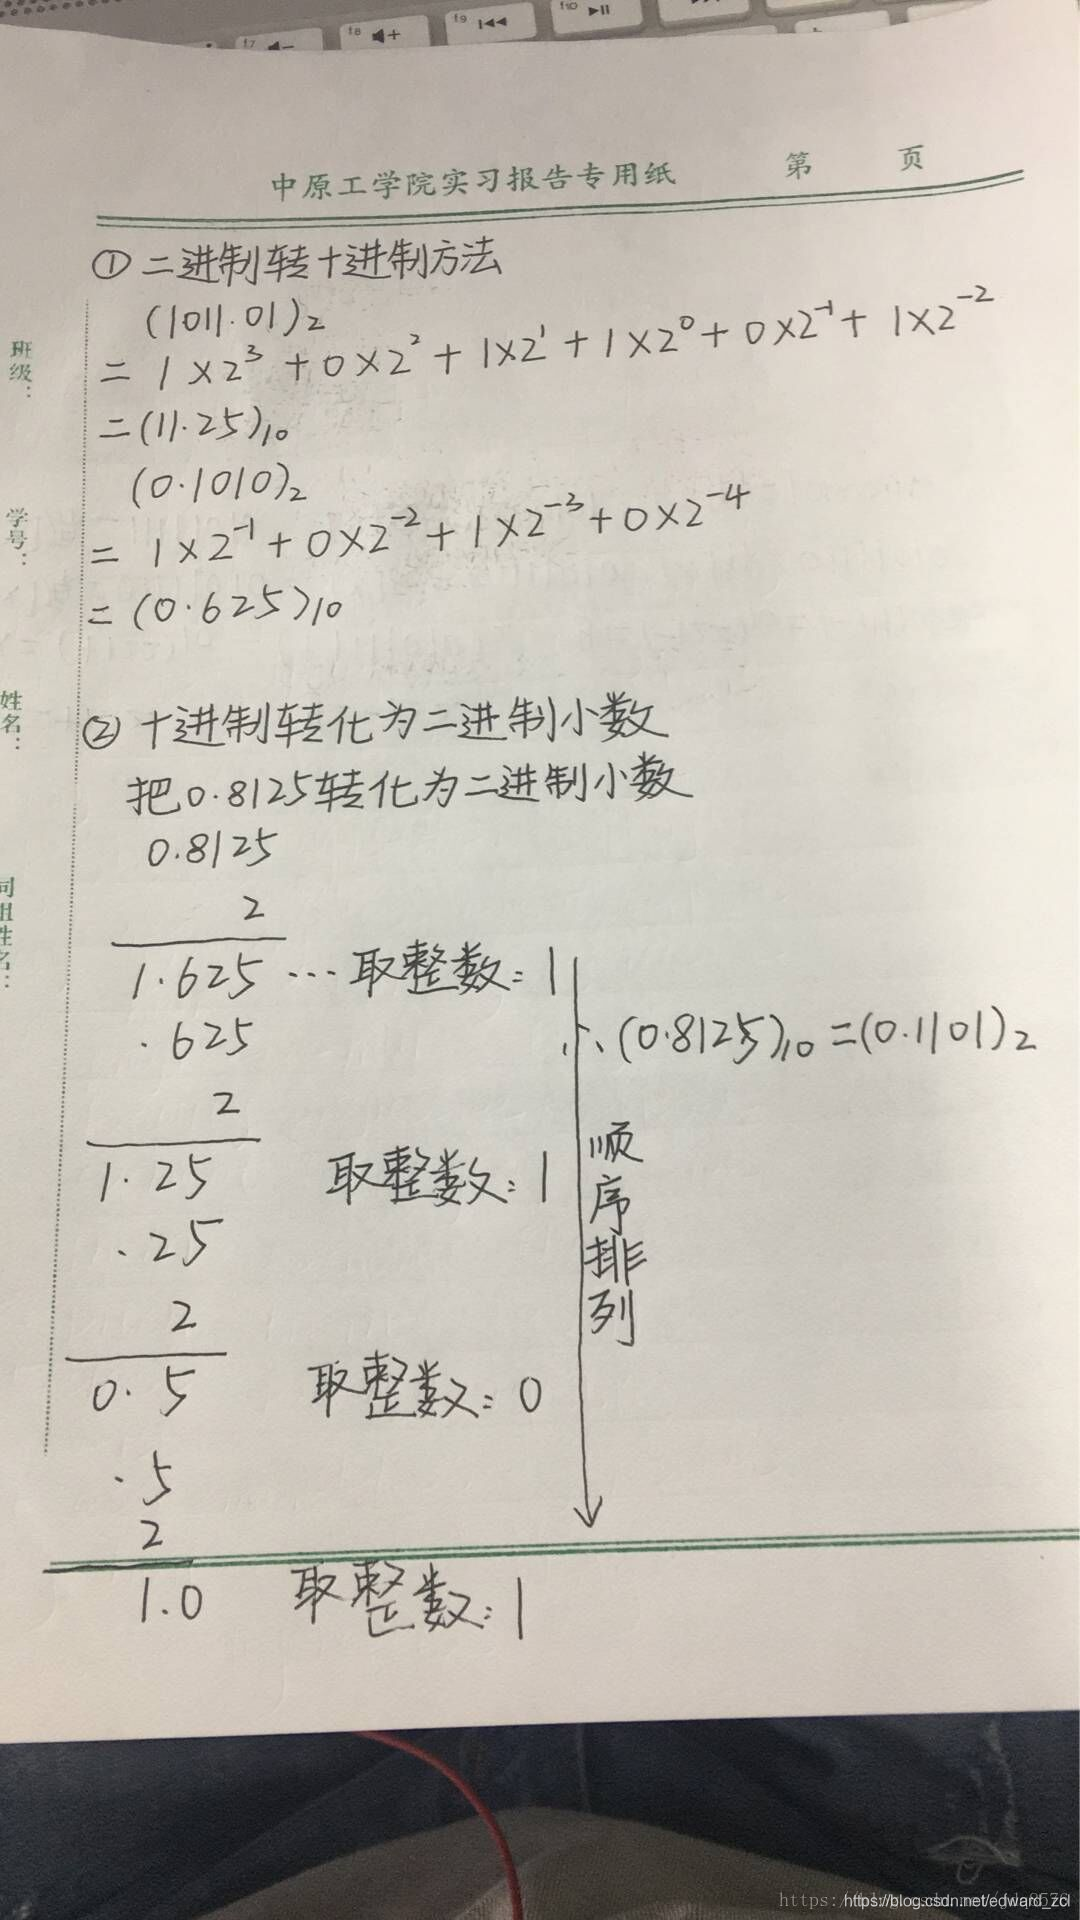 f7
f8
f9
f10
中原工学院实习报告专用纸 第 页
班级：
学号：
姓名：
同组姓名：
① 二进制转十进制方法
(1011.01)₂
= 1×2³ + 0×2² + 1×2¹ + 1×2⁰ + 0×2⁻¹ + 1×2⁻²
=(11.25)₁₀
(0.1010)₂
= 1×2⁻¹ + 0×2⁻² + 1×2⁻³ + 0×2⁻⁴
=(0.625)₁₀
② 十进制转化为二进制小数
把0.8125转化为二进制小数
0.8125
2
1.625 … 取整数: 1
.625
∴ (0.8125)₁₀ =(0.1101)₂
2
1.25 取整数: 1
.25
2
0.5 取整数: 0
.5
2
1.0 取整数: 1
顺序排列
https://blog.csdn.net/edward_zcl